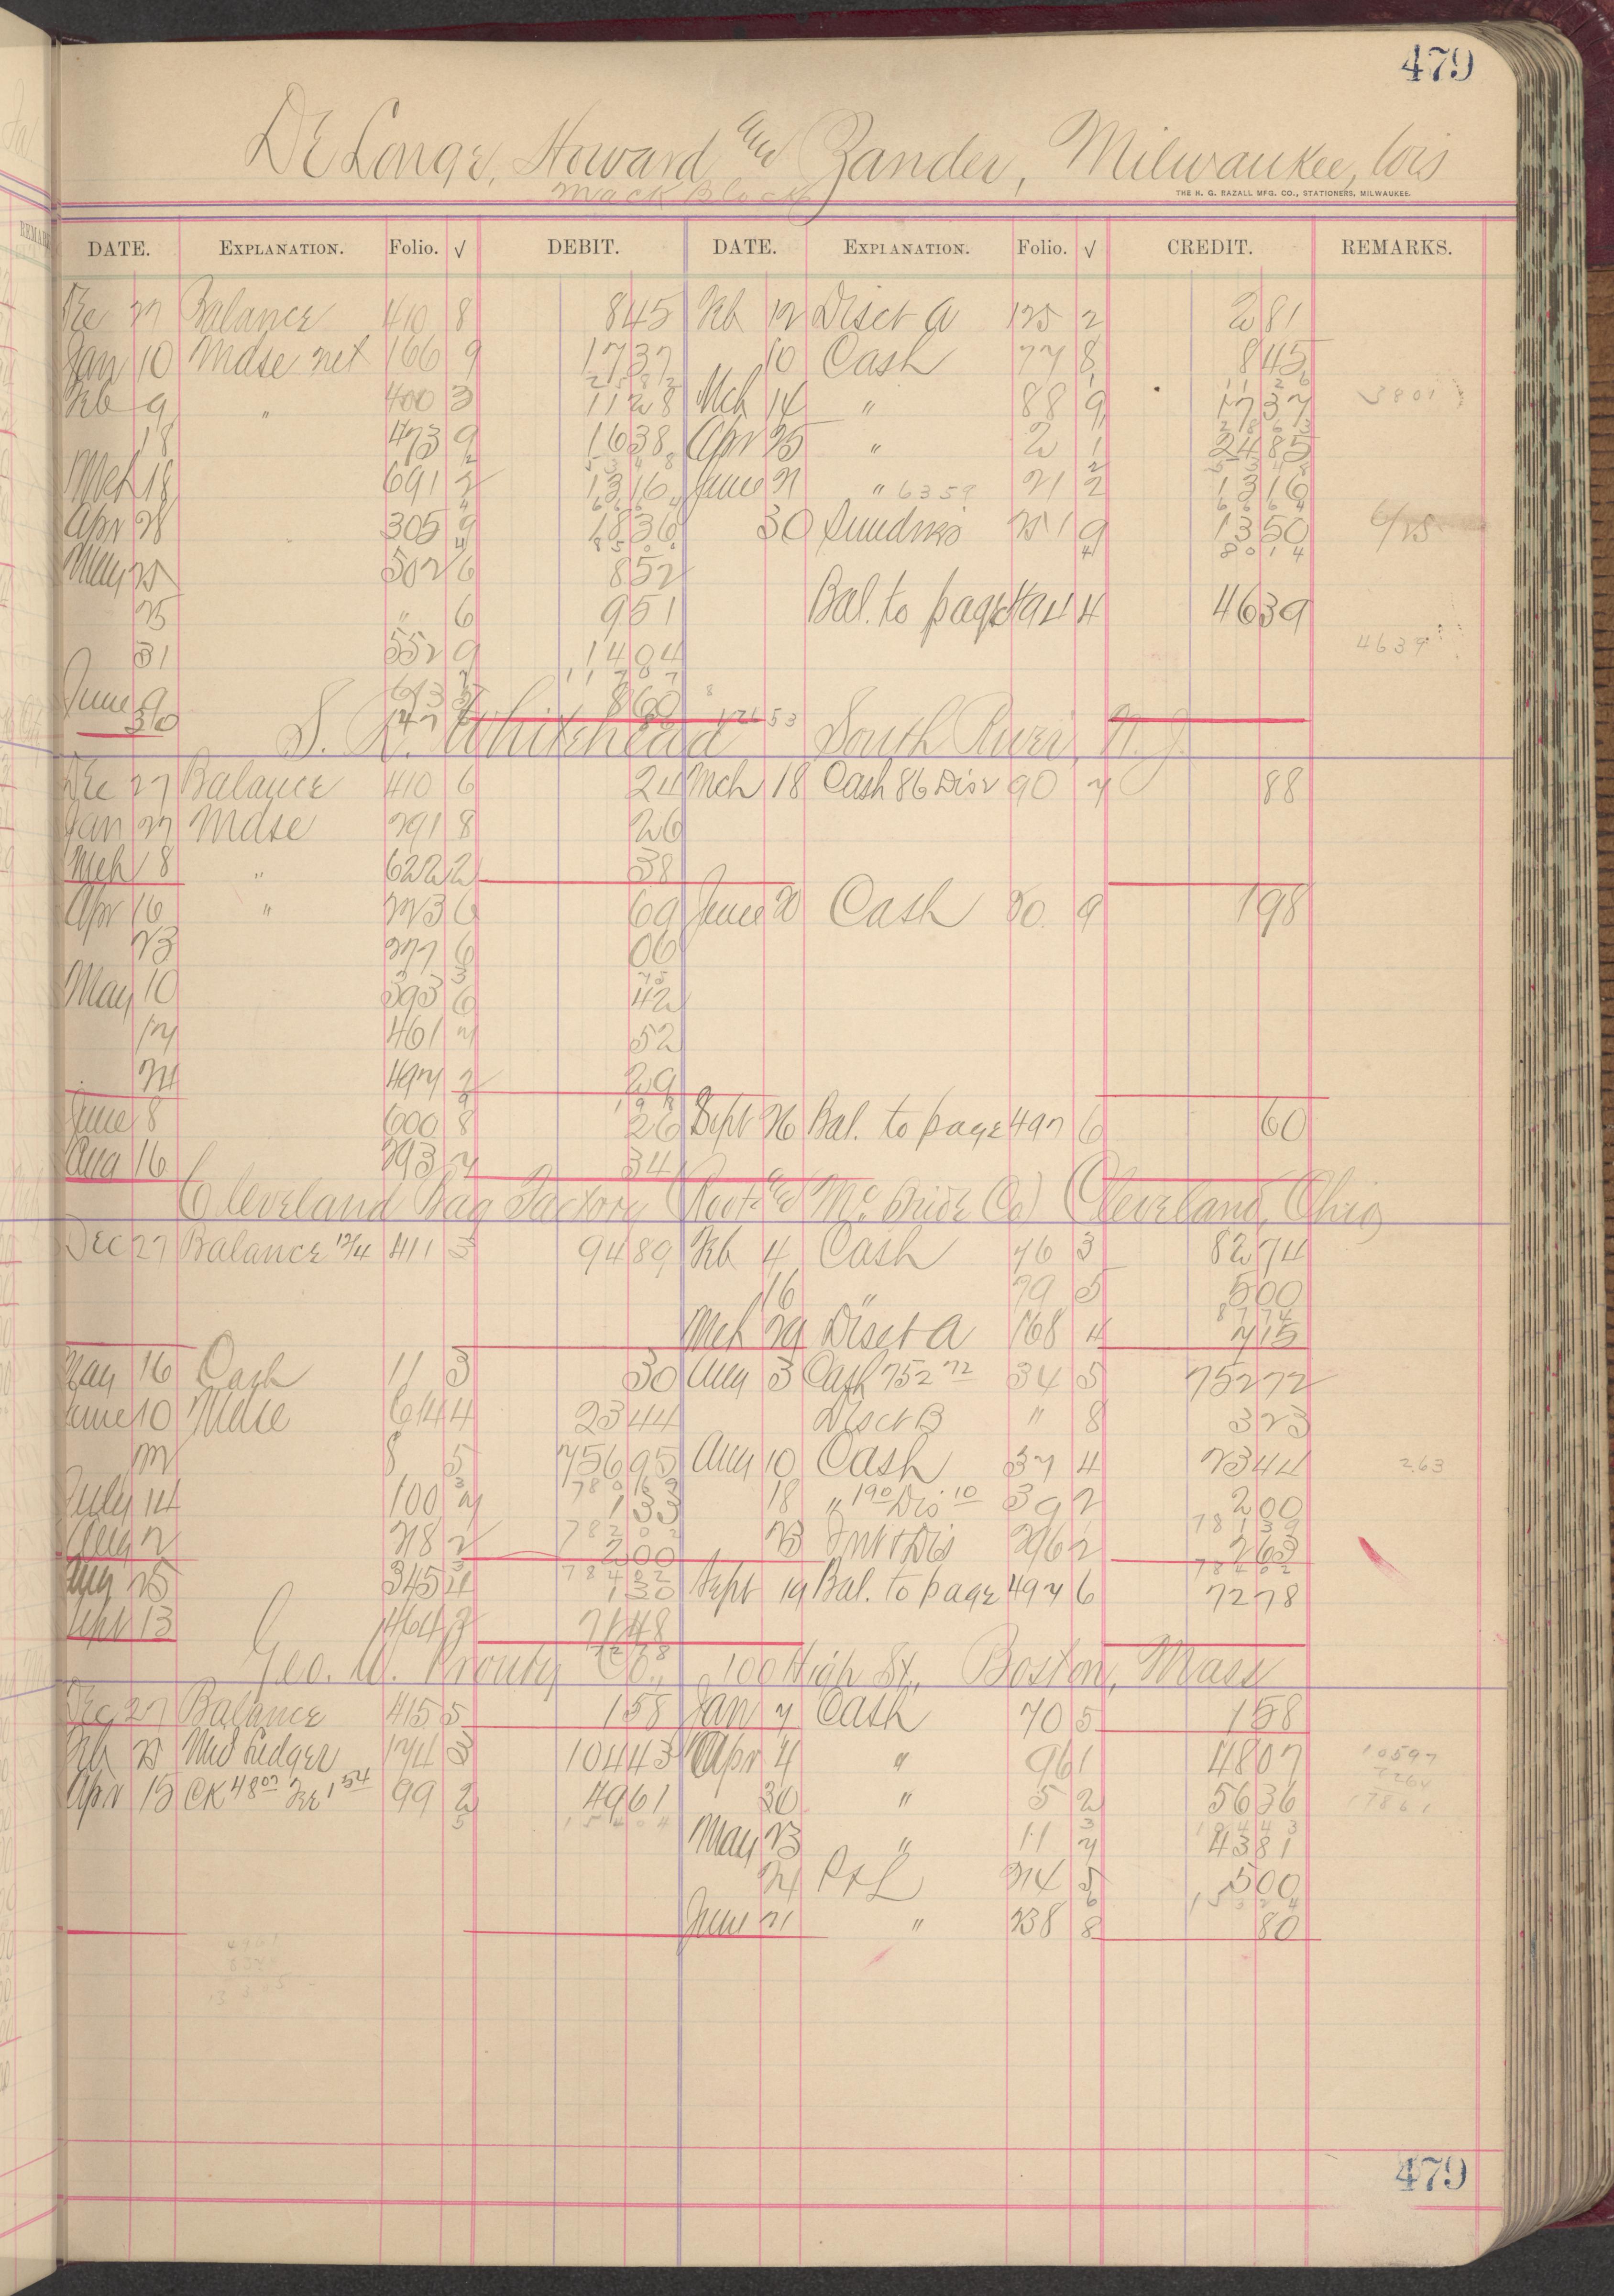 479
DeLonge, Howard and Zander, Milwaukee, Wis
Mack Block
THE H. G. RAZALL MFG. CO., STATIONERS, MILWAUKEE.
DATE. EXPLANATION. Folio. √ DEBIT. DATE. EXPLANATION. Folio. √ CREDIT. REMARKS.
Dec 27 Balance 410 8 845 Feb 12 Disct A 125 2 281
Jan 10 Mdse net 166 9 1737 10 Cash 77 8 845
Feb 9 " 400 3 1128 Mch 14 " 88 9 1737 3801
18 473 9 1638 Apr 25 " 2 1 2485
Mch 18 691 2 1316 June 21 " 6359 21 2 1316
Apr 28 305 9 1836 30 Sundries 251 9 1350
May 25 502 6 852
25 " 6 951 Bal. to page 494 4 4639
31 552 9 1404 4639
June 9 613 860
30 147
S. R. Whitehead South River, N. J.
Dec 27 Balance 410 6 24 Mch 18 Cash 86 Dis 2 90 7 88
Jan 27 Mdse 291 8 26
Mch 8 " 622 2 38
Apr 16 " 223 6 69 June 20 Cash 20 9 198
23 277 6 06
May 10 393 6 42
17 461 7 52
24 497 2 29
June 8 600 8 26 Sept 26 Bal. to page 497 6 60
Aug 16 293 7 34
Cleveland Bag Factory (Root and McBride Co) Cleveland, Ohio
Dec 27 Balance 12/4 411 3 9489 Feb 4 Cash 76 3 8274
16 " 79 5 500
Mch 29 Disct A 168 4 715
May 16 Cash 11 3 30 Aug 3 Cash 752 72 34 5 75272
June 10 Mdse 614 4 2344 Disct B " 8 323
8 5 75695 Aug 10 Cash 37 4 2344 2.63
July 14 100 7 133 18 " 190 Dis 10 39 2 200
Aug 2 218 2 200 23 Int & Dis 296 2 263
Aug 25 345 4 130 Sept 19 Bal. to page 497 6 7278
Sept 13 464 3 7148
Geo. W. Prouty Co., 100 High St., Boston, Mass
Dec 27 Balance 415 5 158 Jan 7 Cash 70 5 158
Feb 25 Mis Ledger 174 3 10443 Apr 4 " 96 1 4807 10597
Apr 15 CK 48 07 Fr 1 54 99 2 4961 30 " 5 2 5636 7264
15404 17861
May 23 " 11 7 4381
24 P & L 214 5 500
June 21 " 238 8 80
479